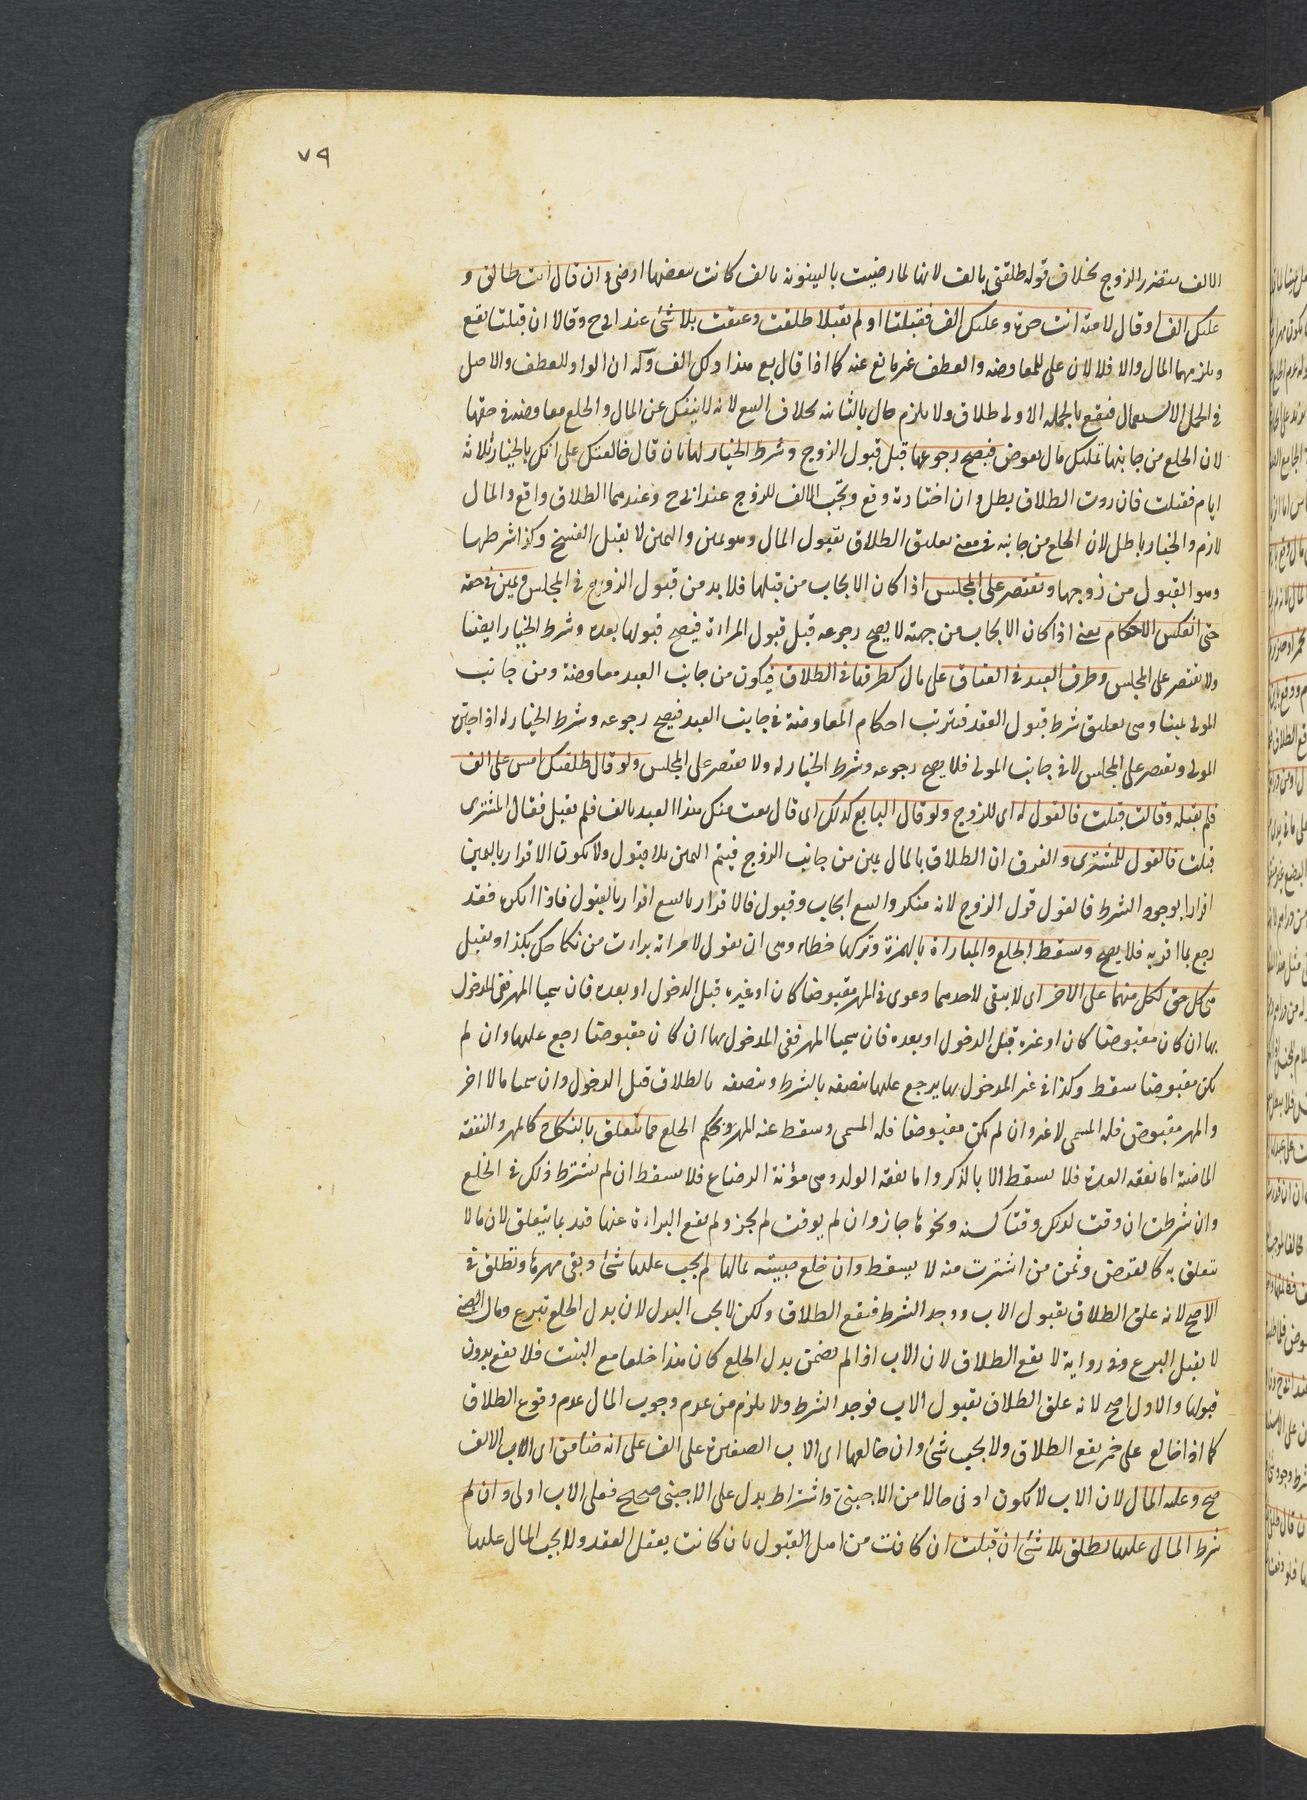 ٧٩
الالف يتضرر الزوج بخلاف قوله طلقتى بالف لانها لما رضيت بالبينونة بالف كانت ببعضها ارضى وان قال انت طالق و
عليك الف او قال لامته انت حرة وعليك الف فقبلتا او لم تقبلا طلقت وعتقت بلا شئ عند ابى ح وقالا ان قبلتا تقع
ويلزمهما المال والا فلا لان على للمعاوضه والعطف غير مانع عنه كما اذا قال بع هذا ولك الف وله ان الواو للعطف والاصل
فى الجمل الاستعمال فتقع بالجمله الاولى طلاق ولا يلزم مال بالثانيه بخلاف البيع لانه لا ينفك عن المال والخلع معاوضه فى حقها
لان الخلع من جانبها تمليك مال بعوض فيصح رجوعها قبل قبول الزوج وشرط الخيار لها بان قال خالعتك على انك بالخيار ثلاثة
ايام فقبلت فان ردت الطلاق بطل وان اختارت وقع ويجب الالف للزوج عند ابى ح وعندهما الطلاق واقع والمال
لازم والخيار باطل لان الخلع من جانبه فى معنى تعليق الطلاق بقبول المال وهو يمين واليمين لا يقبل الفسخ وكذا شرطها
وهو القبول من زوجها ويقتصر على المجلس اذا كان الايجاب من قبلها فلا بد من قبول الزوج فى المجلس ويمين فى حقه
حتى انعكس الاحكام يعنى اذا كان الايجاب من جهته لا يصح رجوعه قبل قبول المراءة فيصح قبولها بعده وشرط الخيار ايضا
ولا يقتصر على المجلس وطرف العبد فى العتاق على مال كطرفها فى الطلاق فيكون من جانب العبد معاوضة ومن جانب
المولى يمينا وهى تعليق شرط قبول العقد فيترتب احكام المعاوضة فى جانب العبد فيصح رجوعه وشرط الخيار له اذا
المولى ويقتصر على المجلس لا فى جانب المولى فلا يصح رجوعه وشرط الخيار له ولا يقتصر على المجلس ولو قال طلقتك امس على الف
فلم تقبله وقالت قبلت فالقول له اى للزوج ولو قال البايع كذلك اى قال بعت منك هذا العبد بالف فلم تقبل فقال المشترى
قبلت فالقول للمشترى والفرق ان الطلاق بالمال يمين من جانب الزوج فيتم اليمين بلا قبول ولا يكون الاقرار باليمين
اقرارا بوجود الشرط فالقول قول الزوج لانه منكر والبيع ايجاب وقبول فالاقرار بالبيع اقرار بالقبول فاذا انكره فقد
رجع بما اقر به فلا يصح ويسقط الخلع والمباراة بالهمزة وتركها خطاء وهى ان يقول لامراته براءت من نكاحك بكذا وتقبل
هى كل حق لكل منهما على الاخر اى لا يبقى لاحدهما دعوى فى المهر مقبوضا كان او غيره قبل الدخول او بعده فان سميا المهر ففى المدخول
بها ان كان مقبوضا كان او غيره قبل الدخول او بعده فان سميا المهر ففى المدخول بها ان كان مقبوضا رجع عليها وان لم
يكن مقبوضا سقط وكذا فى غير المدخول بها يرجع عليها بنصفه بالشرط وبنصفه بالطلاق قبل الدخول وان سميا مالا اخر
والمهر مقبوض فله المسمى لا غير وان لم يكن مقبوضا فله المسمى وسقط عنه المهر بحكم الخلع مما يتعلق بالنكاح كالمهر والنفقه
الماضية اما نفقه العدة فلا يسقط الا بالذكر واما نفقه الولد وهى مؤنة الرضاع فلا يسقط ان لم يشترط ذلك فى الخلع
وان شرطت ان وقت لذلك وقتا كسنه ونحوها جاز وان لم يوقت لم يجز ولم يقع البراءة عنها قيد بما يتعلق لان ما لا
يتعلق به كالقرض وثمن من اشترت منه لا يسقط وان خلع صبيته بمالها لم يجب عليها شئ وبقى مهرها وتطلق فى
الاصح لانه علق الطلاق بقبول الاب ووجد الشرط فيقع الطلاق ولكن لا يجب البدل لان بدل الخلع تبرع ومال الصبى
لا يقبل التبرع وفى رواية لا يقع الطلاق لان الاب اذا لم يضمن بدل الخلع كان هذا خلعا مع البنت فلا يقع بدون
قبولها والاول اصح لانه علق الطلاق بقبول الاب فوجد الشرط ولا يلزم من عدم وجوب المال عدم وقوع الطلاق
كما اذا خالع على خمر يقع الطلاق ولا يجب شئ وان خالعها اى الاب الصغيرة على الف على انه ضامن اى الاب الالف
صح وعليه المال لان الاب لا يكون ادنى حالا من الاجنبى واشتراط بدل على الاجنبى صحيح فعلى الاب اولى وان لم
شرط المال عليها تطلق بلا شئ ان قبلت ان كانت من اهل القبول بان كانت يعقل العقد ولا يجب المال عليها